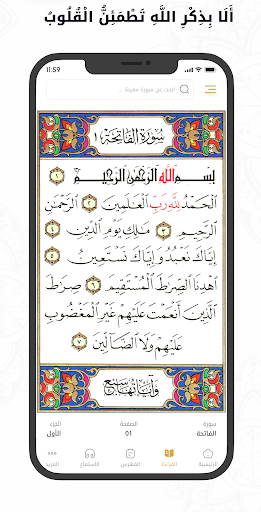 أَلَا بِذِكْرِ اللَّهِ تَطْمَئِنُّ الْقُلُوبُ
11:59
ابحث عن سورة معينة ..
سُورَةُ الفَاتِحَة ١
بِسْمِ اللَّهِ الرَّحْمَٰنِ الرَّحِيمِ ١
الْحَمْدُ لِلَّهِ رَبِّ الْعَالَمِينَ ٢ الرَّحْمَٰنِ
الرَّحِيمِ ٣ مَالِكِ يَوْمِ الدِّينِ ٤
إِيَّاكَ نَعْبُدُ وَإِيَّاكَ نَسْتَعِينُ ٥
اهْدِنَا الصِّرَاطَ الْمُسْتَقِيمَ ٦ صِرَاطَ
الَّذِينَ أَنْعَمْتَ عَلَيْهِمْ غَيْرِ الْمَغْضُوبِ
عَلَيْهِمْ وَلَا الضَّالِّينَ ٧
وَآيَاتُهَا سَبْع
سورة الصفحة الجزء
الفاتحة 01 الأول
الرئيسية القراءة الفهرس للاستماع المزيد